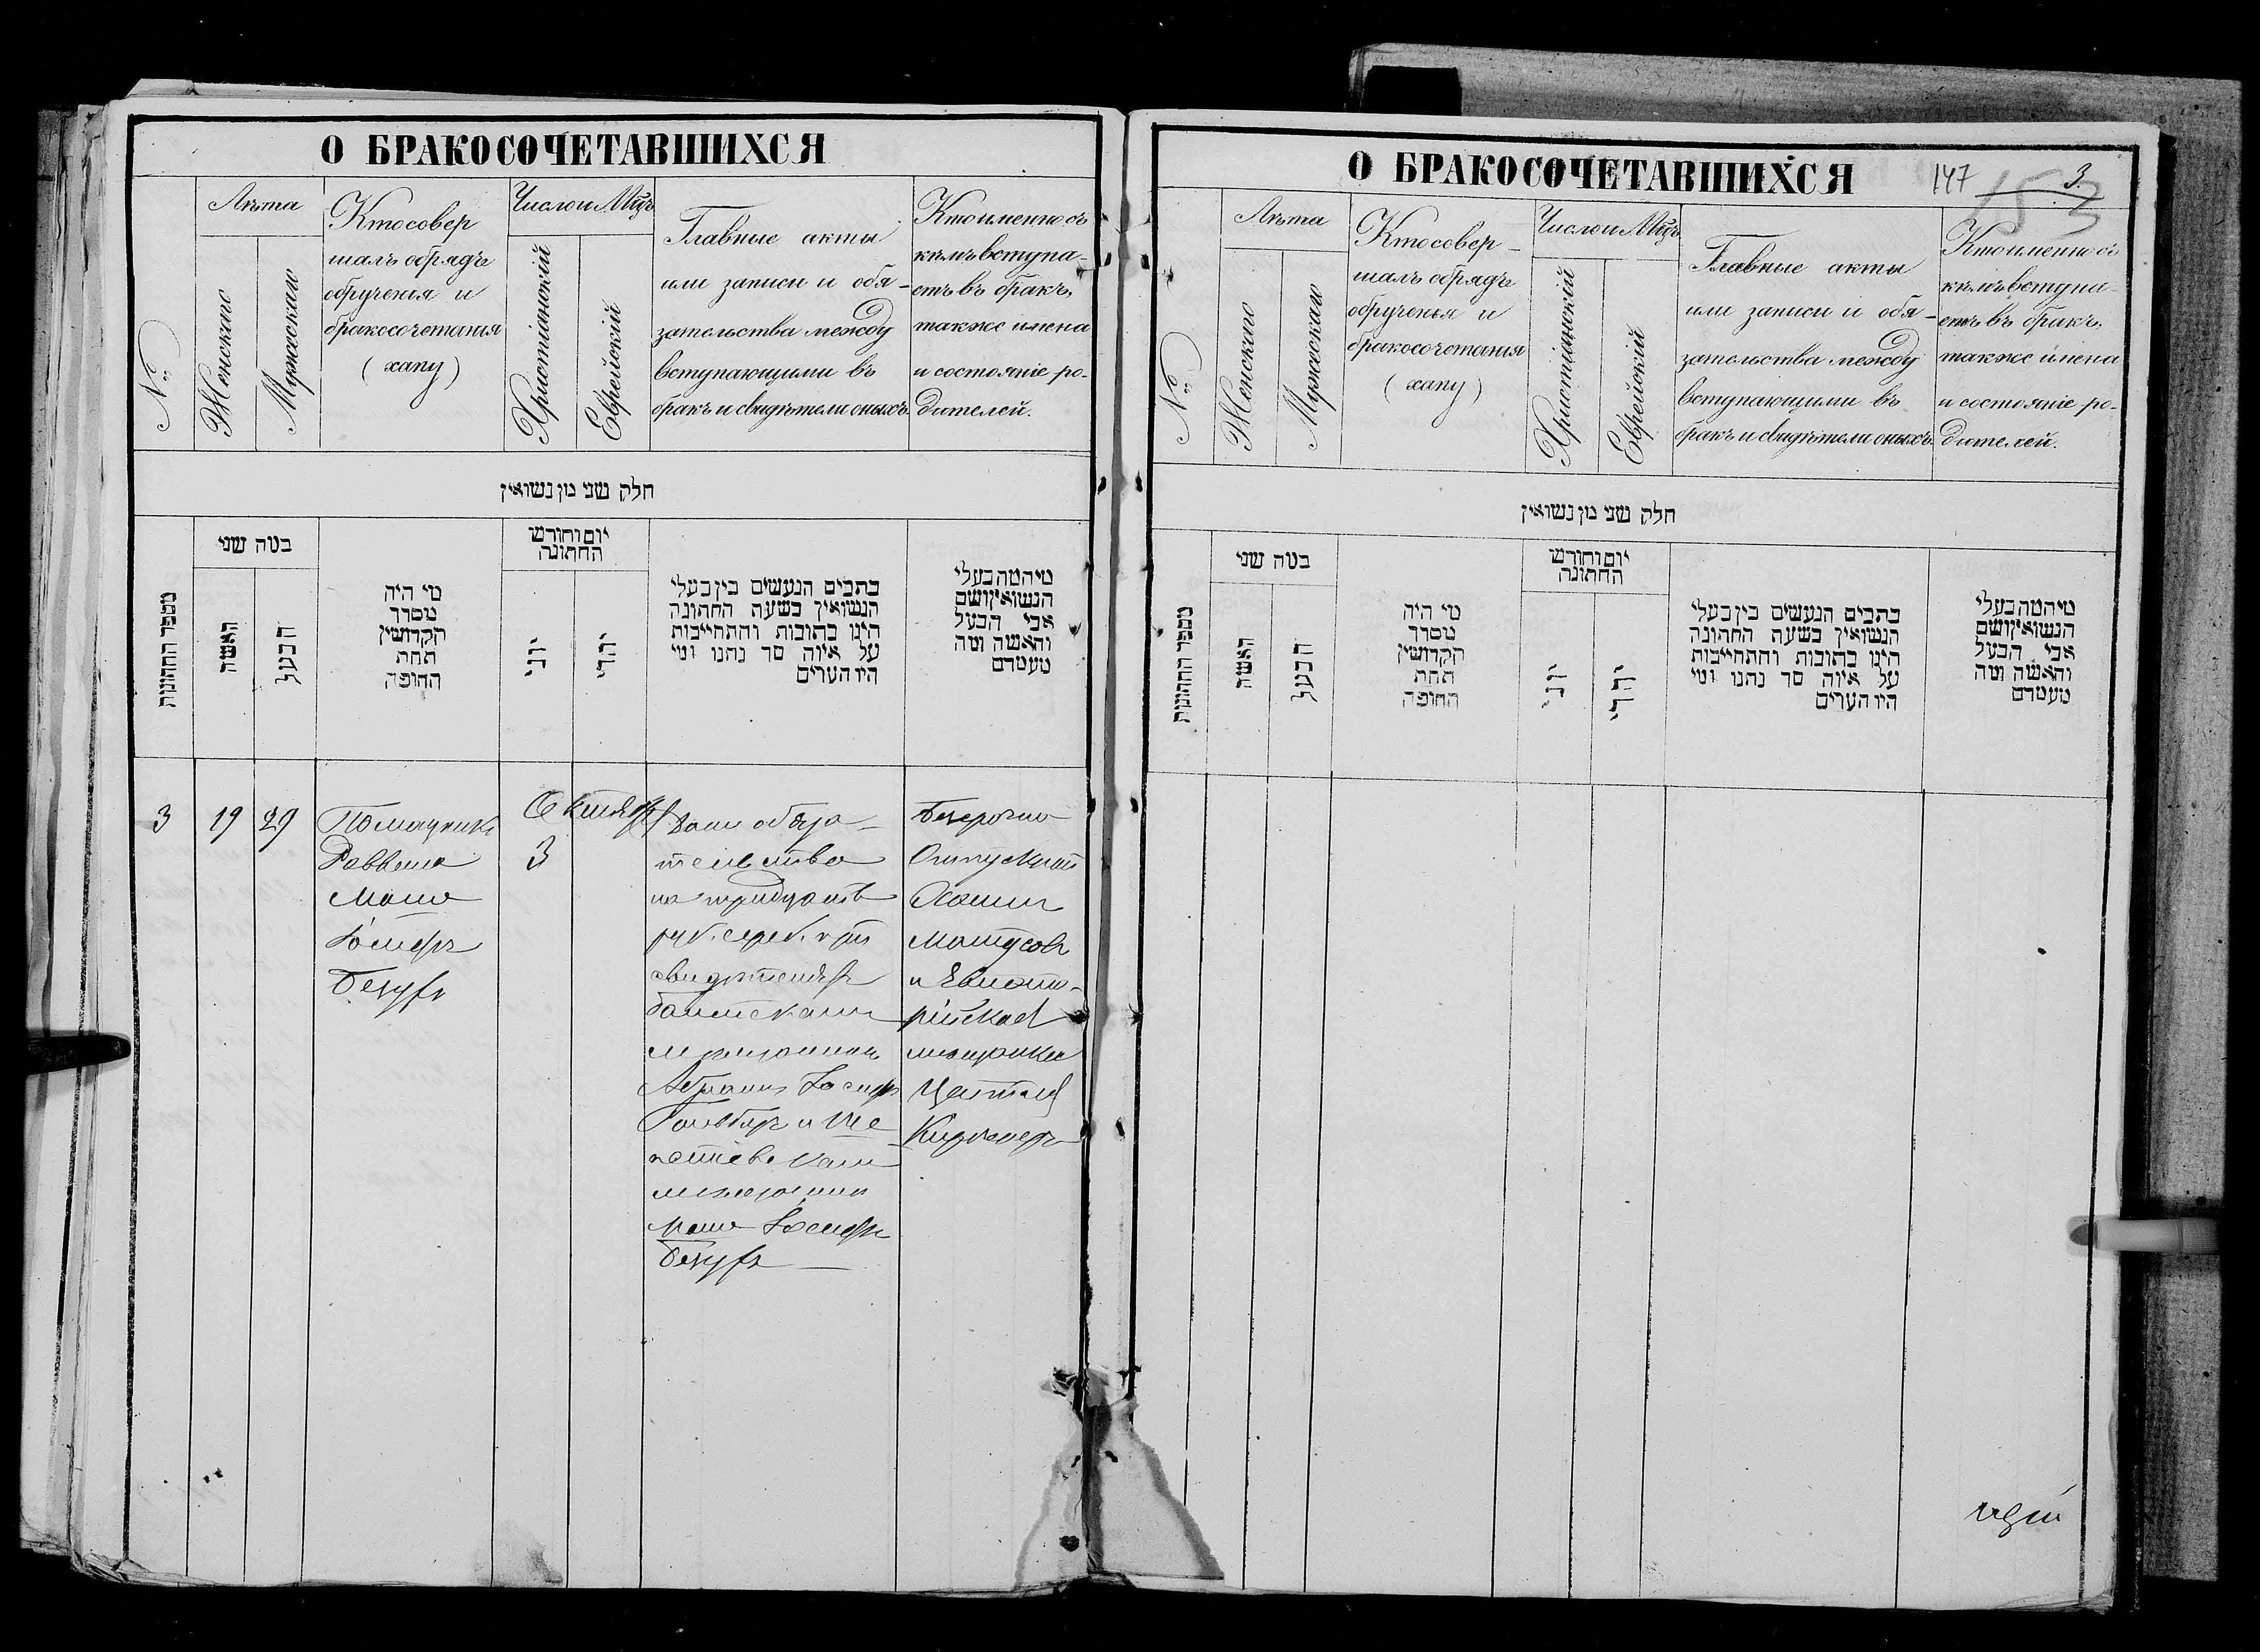 О БРАКОСОЧЕТАВШИХСЯ
№
Лѣта
Женскаго
Мужескаго
Кто совер
шалъ обрядъ
обрученія и
бракосочетанія
(хапу)
Число и Мѣц.
Христіанскій
Еврейскій
Главные акты
или записи и обя-
зательства между
вступающими въ
бракъ и свидѣтели оныхъ.
Кто именно съ
кѣмъ вступа-
етъ въ бракъ,
также имена
и состояніе ро-
дителей.
חלק שני מן נשואין
מספר החתונות
במה שני
האשה
הבעל
מי היה
מסדר
הקדושין
תחת
החופה
יום וחודש
החתונה
יוני
יהדי
כתבים הנעשים בין בעלי
הנשואין בשעה החתונה
הינו כתובות והתחייבות
על איזה סך נתנו ומי
היו העדים
מי המה בעלי
הנשואין ושם
אבי הבעל
והאשה ומה
מעמדם
3
19
29
Помощникъ
Раввина
Мошко
Іосифъ
Октября
3
Дали обяза-
тельство
на тридцать
руб. сереб. при
свидѣтеляхъ
мѣщанинъ
Абрамъ Іосифъ
мѣщанинъ
Мошко Іосифъ
Безсрочно
Отпускной
Хаимъ
Матусовъ
и Евпато-
рійская
мѣщанка
О БРАКОСОЧЕТАВШИХСЯ
147
3.
153
№
Лѣта
Женскаго
Мужескаго
Кто совер-
шалъ обрядъ
обрученья и
бракосочетанія
(хапу)
Число и Мѣц.
Христіанскій
Еврейскій
Главные акты
или записи и обя-
зательства между
вступающими въ
бракъ и свидѣтели оныхъ.
Кто именно съ
кѣмъ вступа-
етъ въ бракъ,
также имена
и состояніе ро-
дителей.
חלק שני מן נשואין
מספר החתונות
במה שני
האשה
הבעל
מי היה
מסדר
הקדושין
תחת
החופה
יום וחודש
החתונה
יוני
יהדי
כתבים הנעשים בין בעלי
הנשואין בשעה החתונה
הינו כתובות והתחייבות
על איזה סך נתנו ומי
היו העדים
מי המה בעלי
הנשואין ושם
אבי הבעל
והאשה ומה
מעמדם